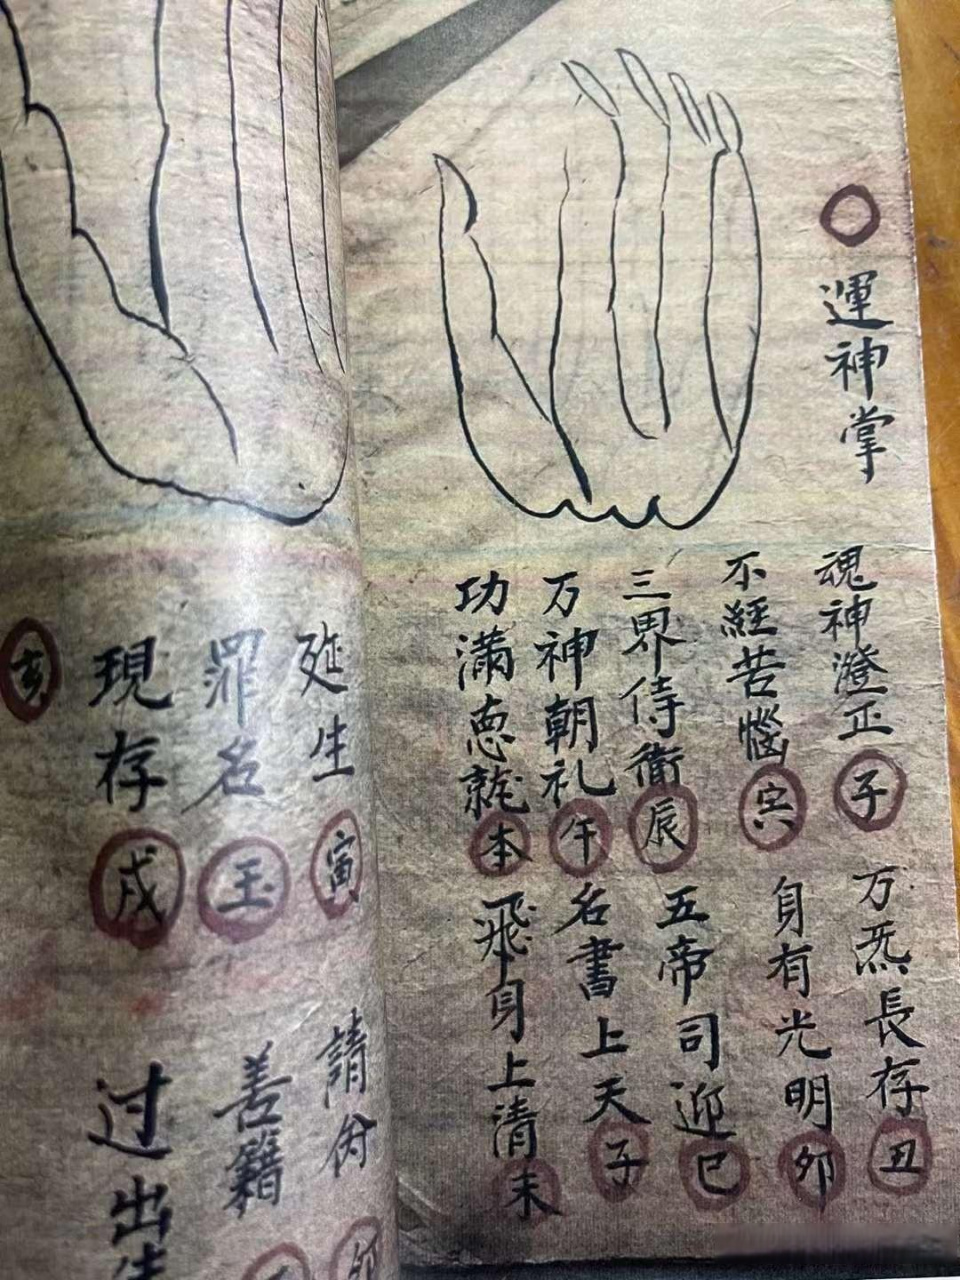 運神掌
魂神澄正 子 万炁長存 丑
不經苦惱 寅 身有光明 卯
三界侍衛 辰 五帝司迎 巳
万神朝礼 午 名書上天 子
功滿德就 本 飛身上清 未
延生 寅 請
罪名 玉 善籍
現存 戌 过出生
亥